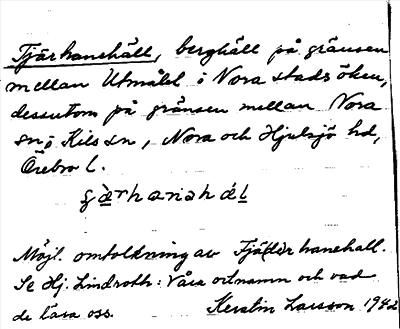 Tjärhanehäll, berghäll på gränsen
mellan Utmålet i Nora stads öken,
dessutom på gränsen mellan Nora
sn i Kils sn, Nora och Hjulsjö hd,
Örebro l.
Möjl. omtolkning av Fjä(de)rhanehall.
Se Hj. Lindroth: Våra ortnamn och vad
de lära oss. Kerstin Larsson 1942